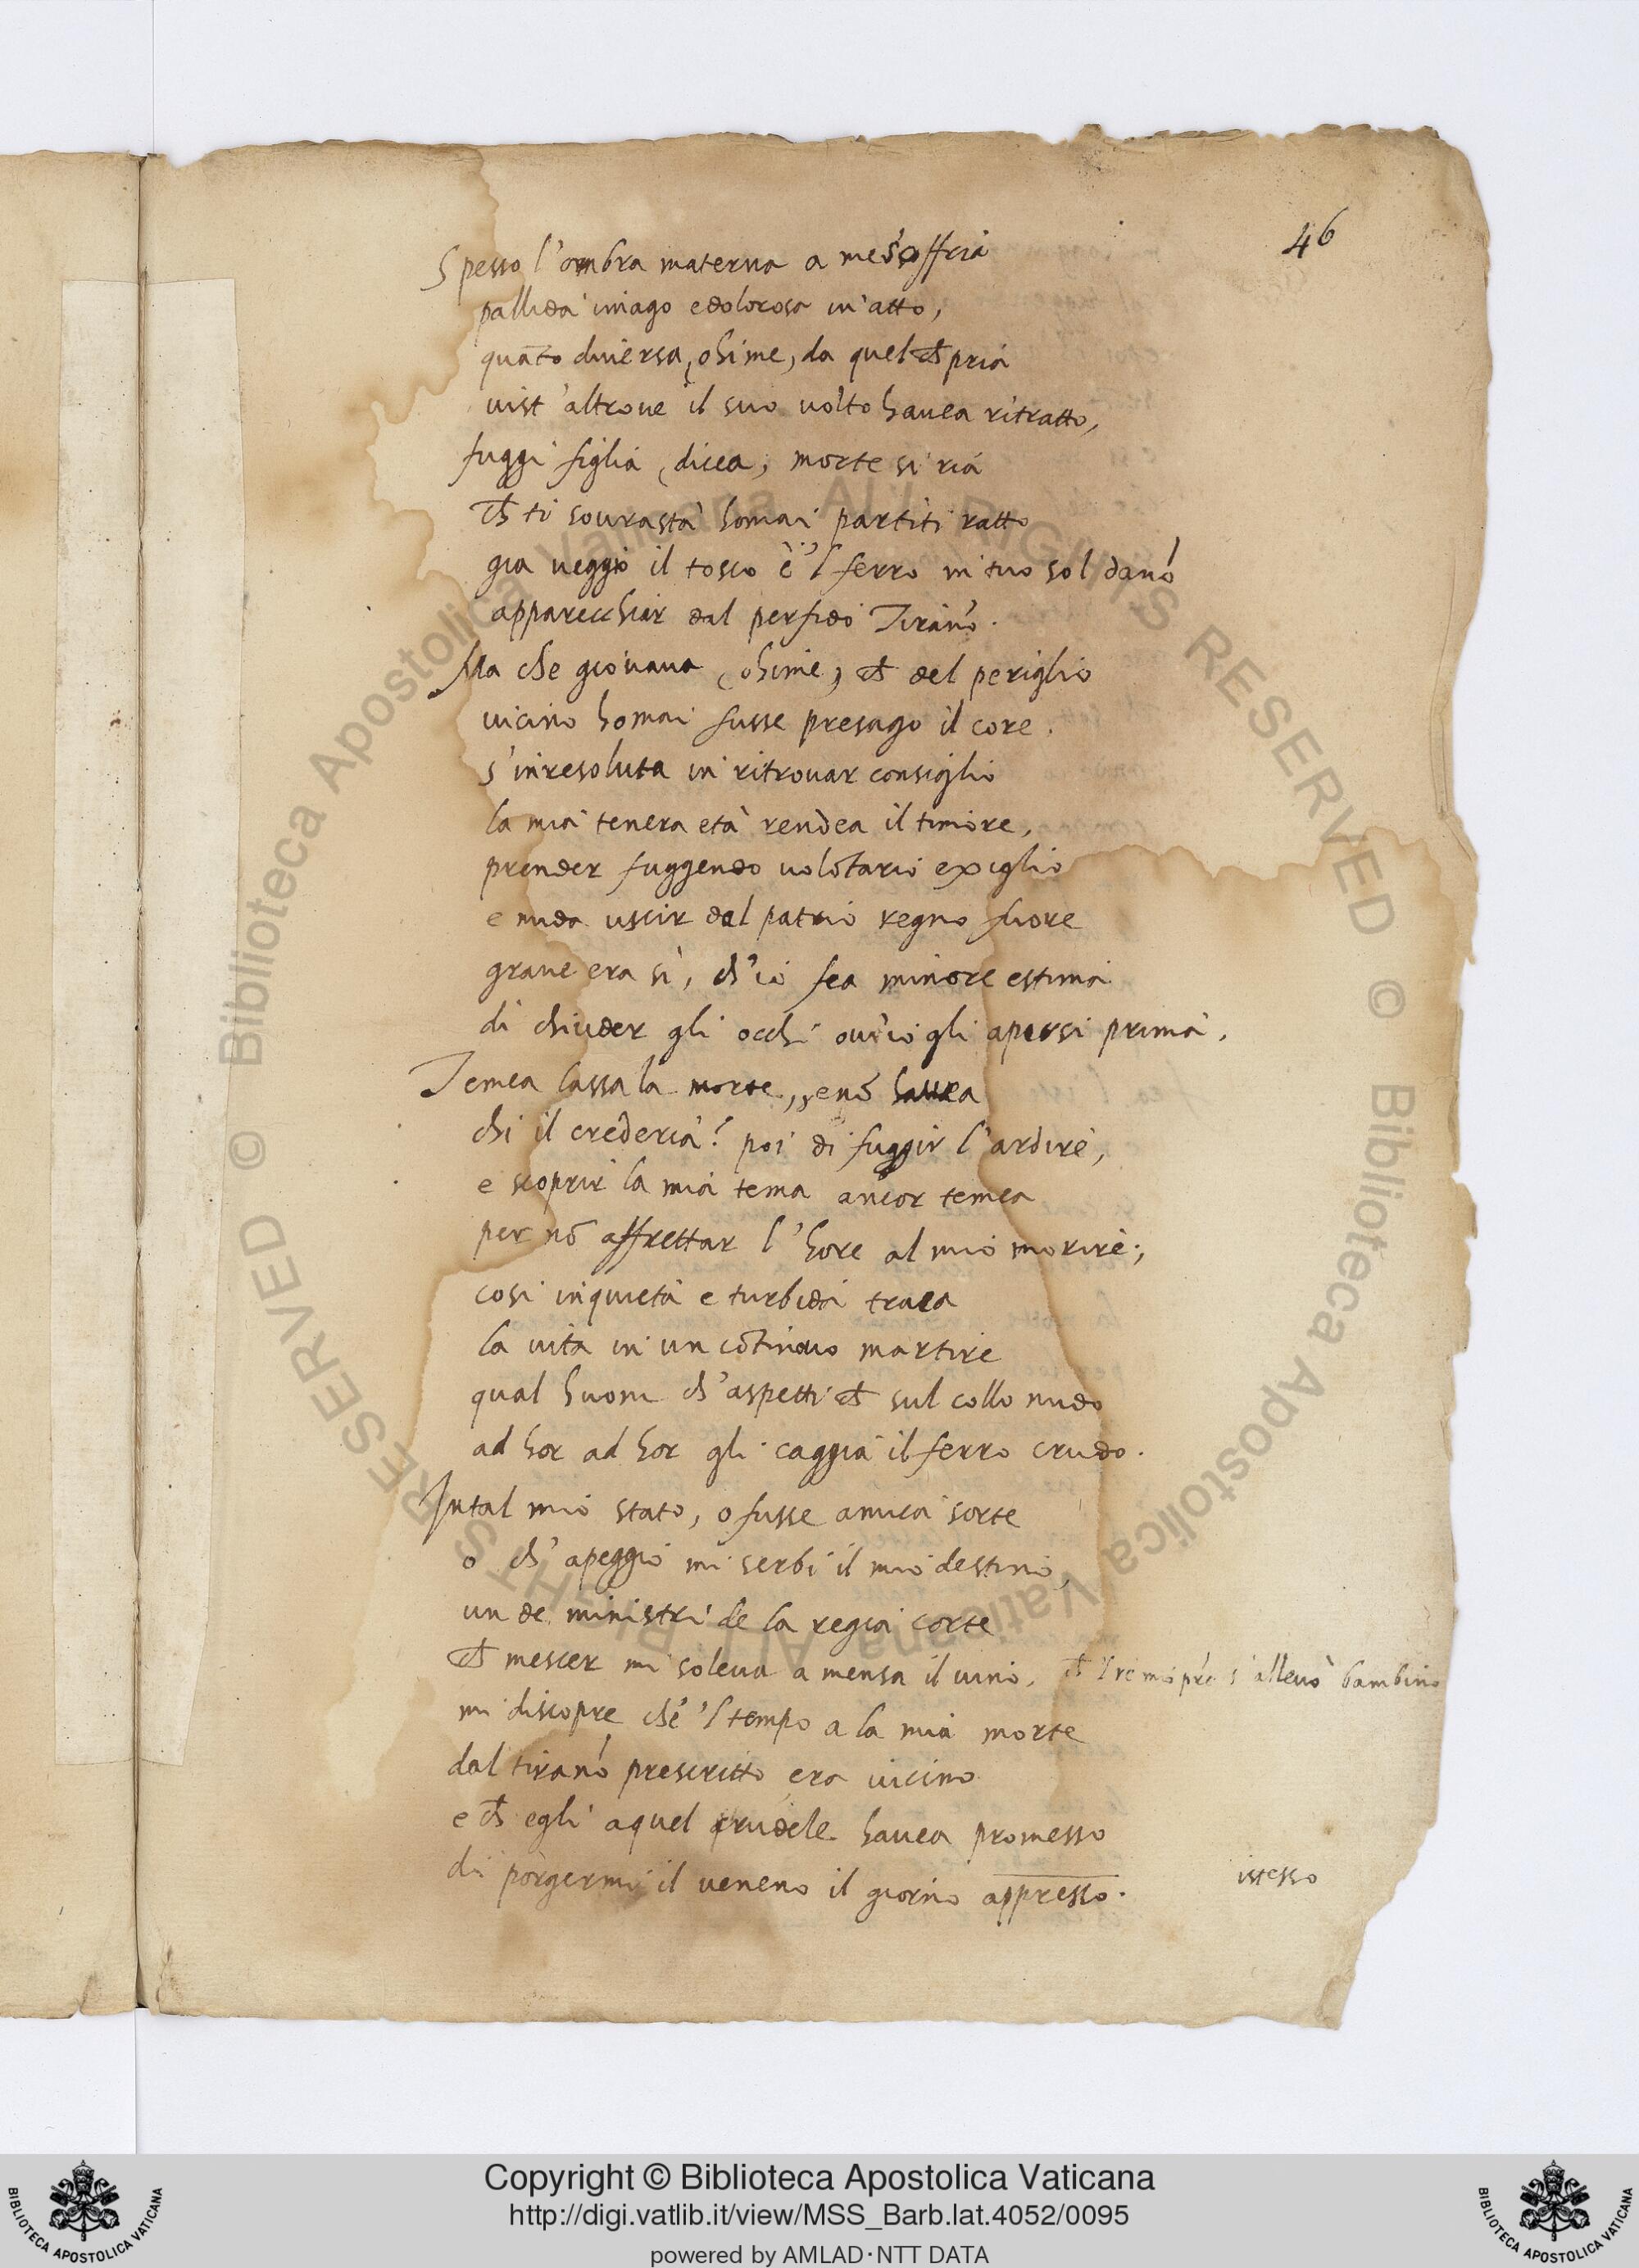 46
Spesso l'ombra materna a me s'offria
pallida imago e dolorosa in atto,
quāto diversa, ohime, da quel ch̄ pria
vist' altrove il suo volto havea ritratto,
fuggi figlia, dicea, morte si ria
ch̄ ti sourasta homai partiti ratto
gia veggio il tosco e 'l ferro in tuo sol dañо
apparecchiar dal perfido Tirāno.
Ma che giovava, ohime, ch̄ del periglio
vicino homai fusse presago il core.
s'inresoluta in ritrovar consiglio
la mia tenera età rendea il timore,
prender fuggendo volōtario exiglio
e nuda uscir del patrio regno fuore
grave era sì, ch'io fea minore estima
di chiuder gli occhi ov'io gli apersi prima.
Temea lassa la morte, e nō havea
chi il crederia? poi di fuggir l'ardire,
e scoprir la mia tema ancor temea
per nō affrettar l'hore al mio morire;
cosi inquieta e turbida traea
la vita in un cōtinovo martire
qual huom ch'aspetti ch̄ sul collo nudo
ad hor ad hor gli caggia il ferro crudo.
In tal mio stato, o fusse amica sorte
o ch'a peggio mi serbi il mio destino,
un de ministri de la regia corte
ch̄ mescer mi soleva a mensa il vino, ch̄ 'l re mio pre s'allevò bambino
mi discopre che 'l tempo a la mia morte
dal tirāno prescritto era vicino
e ch̄ egli a quel crudele havea promesso
di porgermi il veneno il giorno appresso. istesso
Copyright © Biblioteca Apostolica Vaticana
http://digi.vatlib.it/view/MSS_Barb.lat.4052/0095
powered by AMLAD·NTT DATA
BIBLIOTECA APOSTOLICA VATICANA
BIBLIOTECA APOSTOLICA VATICANA
© Biblioteca Apostolica Vaticana ALL RIGHTS RESERVED © Biblioteca Apostolica Vaticana ALL RIGHTS RESERVED